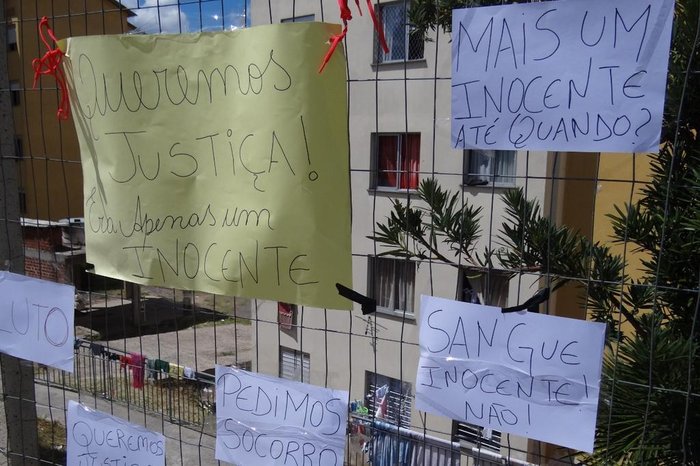 Queremos
JUSTIÇA!
Era Apenas um
INOCENTE
MAIS UM
INOCENTE
ATÉ QUANDO?
LUTO
SANGUE
INOCENTE!
NÃO!
PEDIMOS
SOCORRO
QUEREMOS
JUSTIÇA